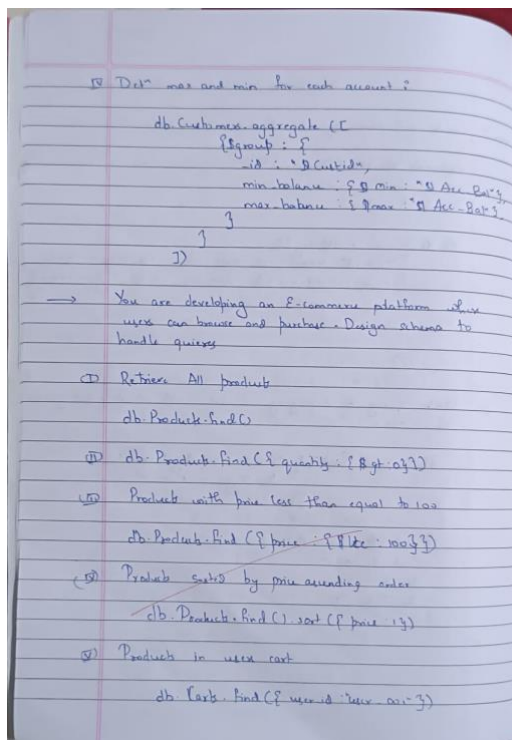 IV Detn max and min for each account :
db.Customers.aggregate ([
{$group : {
_id : "$Custid",
min_balance : {$min : "$Acc_Bal"},
max_balance : {$max : "$Acc_Bal"}.
}
}
])
→ You are developing an E-commerce platform where
users can browse and purchase. Design schema to
handle quieres
I Retrieve All product
db.Products.find()
II db.Products.find({ quantity : {$gt : 0}})
III Products with price less than equal to 100
db.Products.find({ price : { : 100}})
IV Products sorted by price ascending order
db.Products.find().sort({ price : 1})
V Products in users cart
db.Carts.find({ user_id : })